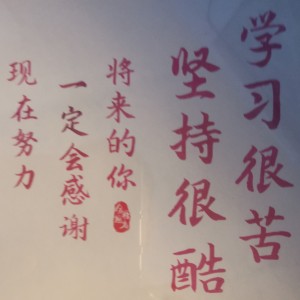 学习很苦
坚持很酷
将来的你
一定会感谢
现在努力